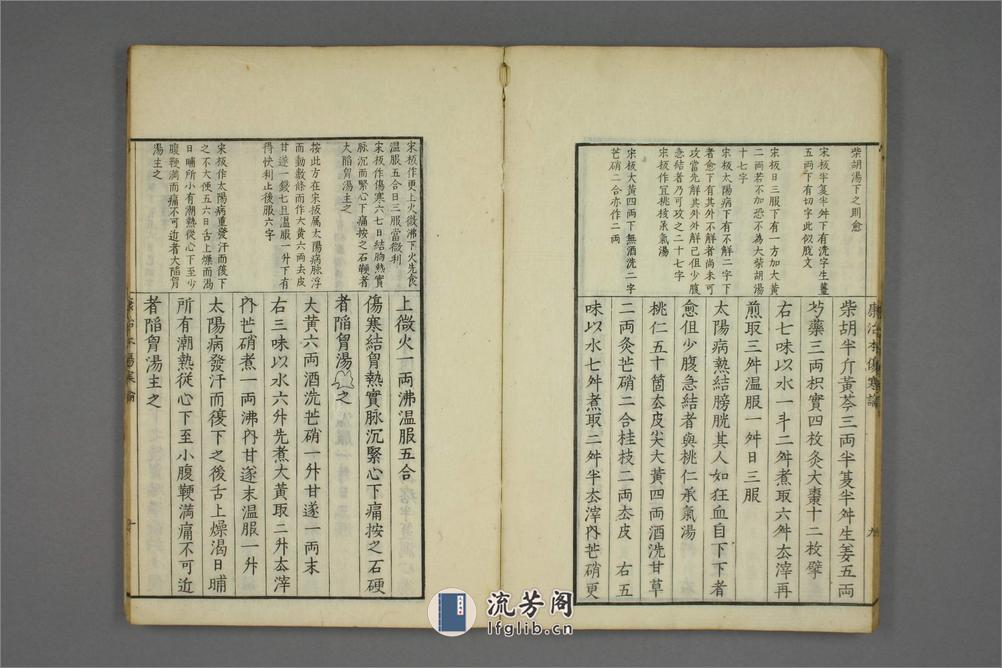 柴胡湯下之則愈
宋板半夏半舛下有洗字生薑
五两下有切字此似脫文
宋板日三服下有一方加大黃
二两若不加恐不為大柴胡湯
十七字
宋板太陽病下有不解二字下
者愈下有其外不解者尚未可
攻當先解其外外解已但少腹
急結者乃可攻之二十七字
宋板作宜桃核承氣湯
宋板大黃四两下無酒洗二字
芒硝二合亦作二两
柴胡半斤黃芩三両半夏半舛生姜五両
芍藥三両枳實四枚灸大棗十二枚擘
右七味以水一斗二舛煮取六舛去滓再
煎取三舛温服一舛日三服
太陽病熱結膀胱其人如狂血自下下者
愈但少腹急結者與桃仁承氣湯
桃仁五十箇去皮尖大黃四両酒洗甘草
二両灸芒硝二合桂枝二両去皮 右五
味以水七舛煮取二舛半去滓內芒硝更
康治本傷寒論
九
宋板作更上火微沸下火先食
温服五合日三服當微利
宋板作傷寒六七日結胸熱實
脉沉而緊心下痛按之石鞕者
大陷胷湯主之
按此方在宋板属太陽病脉浮
而動數條而作大黃六両去皮
甘遂一錢匕且温服一升下有
得快利止後服六字
宋板作太陽病重發汗而復下
之不大便五六日舌上燥而渴
日晡所小有潮熱從心下至少
腹鞕滿而痛不可近者大陷胷
湯主之
上微火一両沸温服五合
傷寒結胷熱實脉沉緊心下痛按之石硬
者陷胷湯主之
大黃六両酒洗芒硝一升甘遂一両末
右三味以水六升先煮大黃取二升去滓
內芒硝煮一両沸內甘遂末温服一升
太陽病發汗而復下之後舌上燥渴日晡
所有潮熱從心下至小腹鞕満痛不可近
者陷胷湯主之
康治本傷寒論
十
流芳阁
lfglib.cn